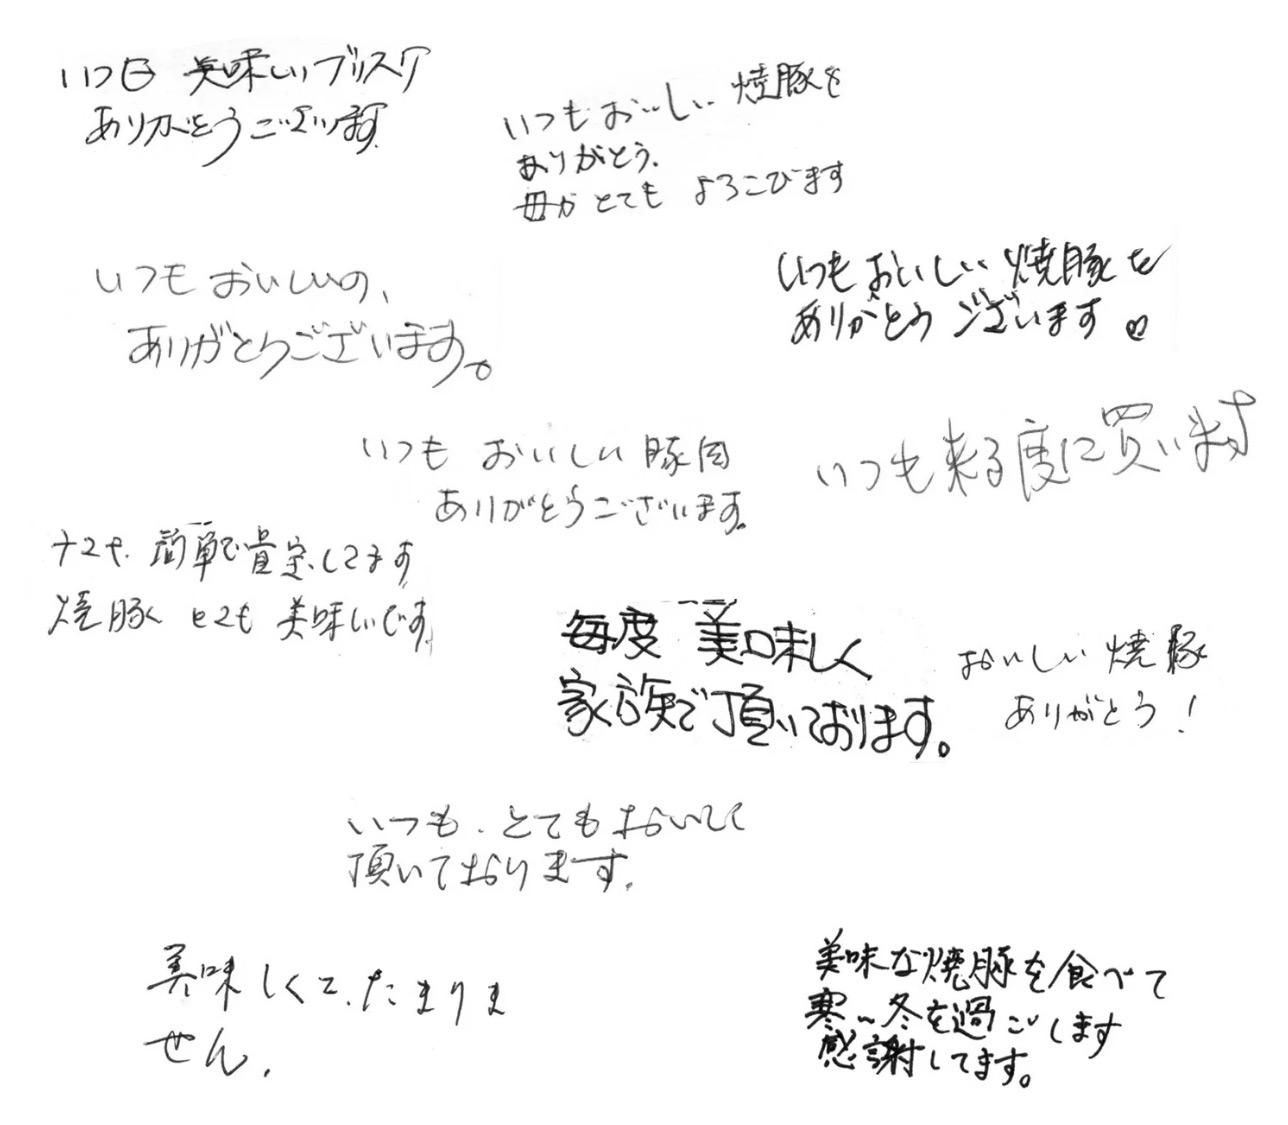 いつも 美味しいブリスケ
ありがとうございます
いつもおいしい 焼豚を
ありがとう。
母が とても よろこびます
いつも おいしいの、
ありがとうございます。
いつも おいしい 焼豚を
ありがとう ございます
いつも おいしい 豚肉
ありがとうございます。
いつも来る度に買います
簡単で してます
焼豚 とても 美味しいです。
毎度 美味しく
家族で頂いております。
おいしい 焼豚
ありがとう!
いつも、とてもおいしく
頂いております。
美味しくて、たまりま
せん。
美味な焼豚を食べて
寒い冬を過ごします
感謝してます。